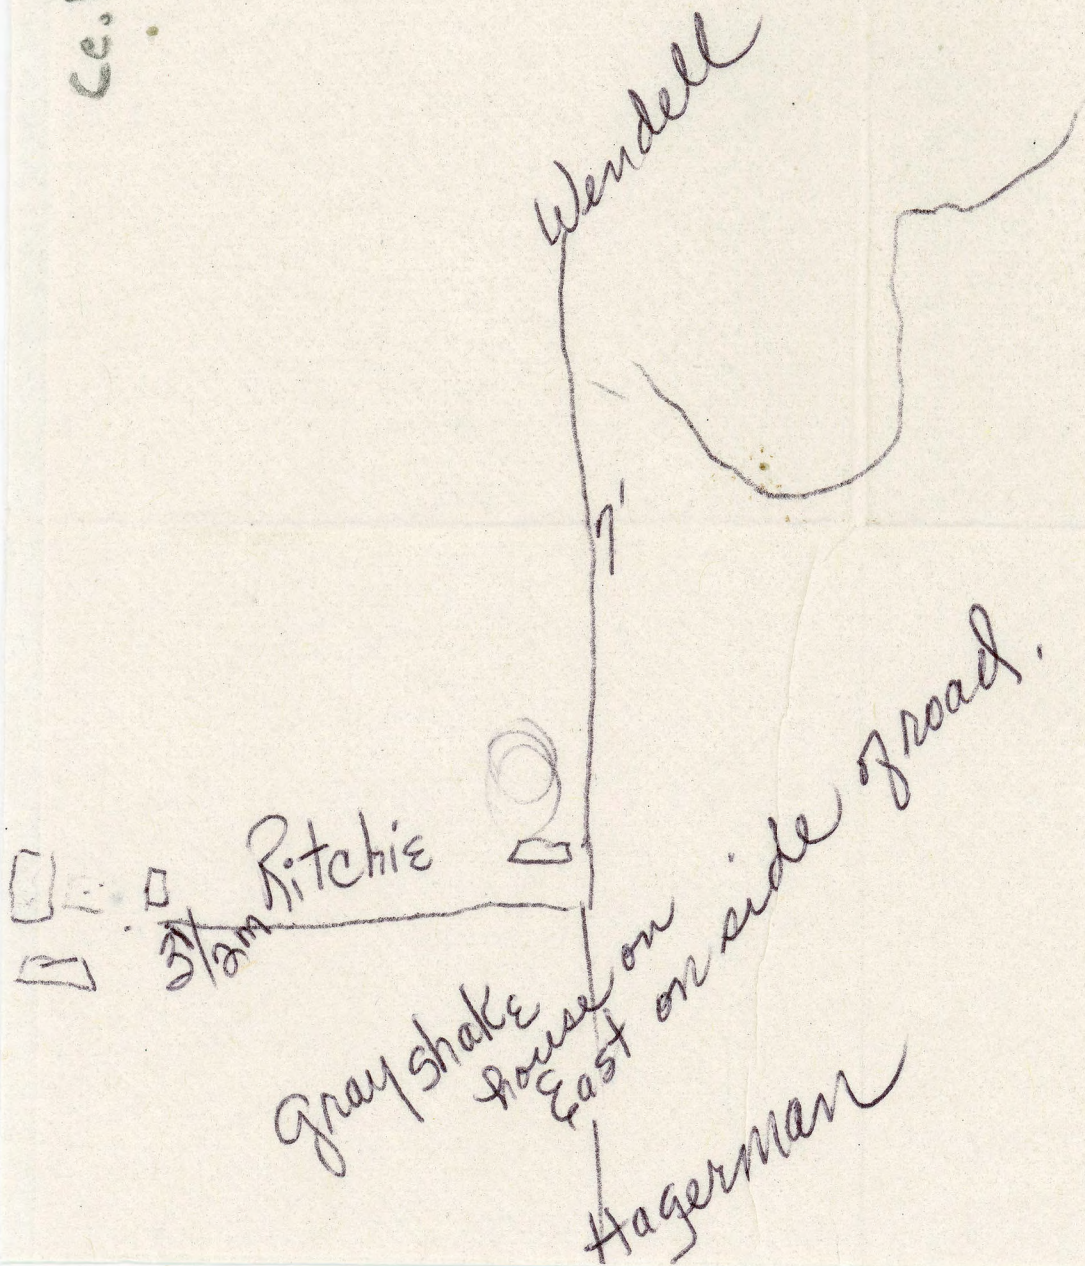 Ce.
Wendell
7'
Ritchie
3 1/2 m
Gray shake
house on
East on side of road.
Hagerman